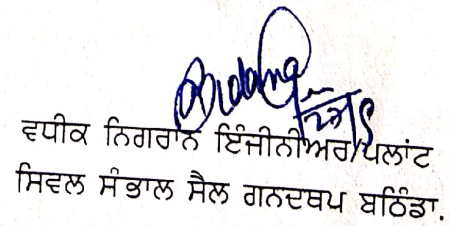 ਵਧੀਕ ਨਿਗਰਾਨ ਇੰਜੀਨੀਅਰ/ਪਲਾਂਟ
ਸਿਵਲ ਸੰਭਾਲ ਸੈਲ ਗਨਦਥਪ ਬਠਿੰਡਾ.